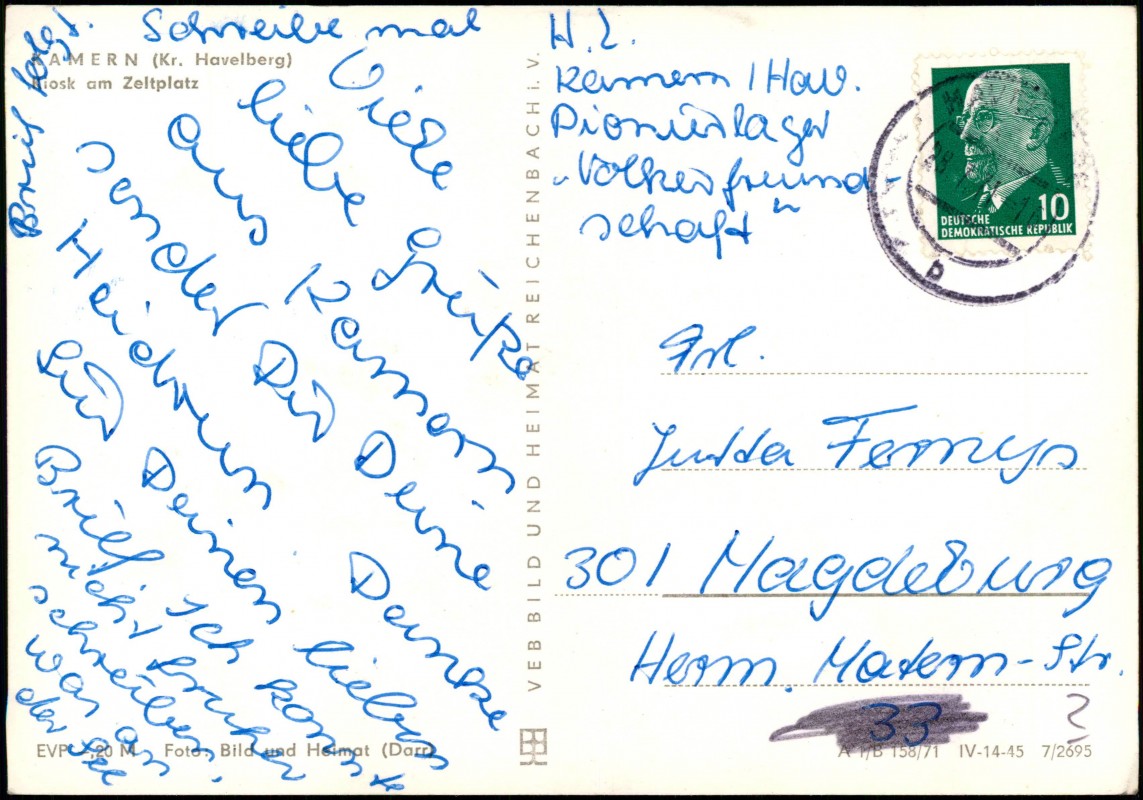 KAMERN (Kr. Havelberg)
Kiosk am Zeltplatz
Viele
liebe Grüße
aus Kamern
sendet Dir Deine
Heidrun
Danke
für Deinen lieben
Brief. Ich konnte
nicht früher
schreiben.
War an
der See
Brief folgt.
Schreibe mal
VEB BILD UND HEIMAT REICHENBACH i. V.
H. Z.
Kamern / Hav.
Pionierlager
„Völkerfreund-
schaft"
10
DEUTSCHE
DEMOKRATISCHE REPUBLIK
Frl.
Jutta Fernys
301 Magdeburg
Herm. Matern-Str.
33 2
EVP 0,20 M Foto: Bild und Heimat (Darr)
A 1/B 158/71 IV-14-45 7/2695